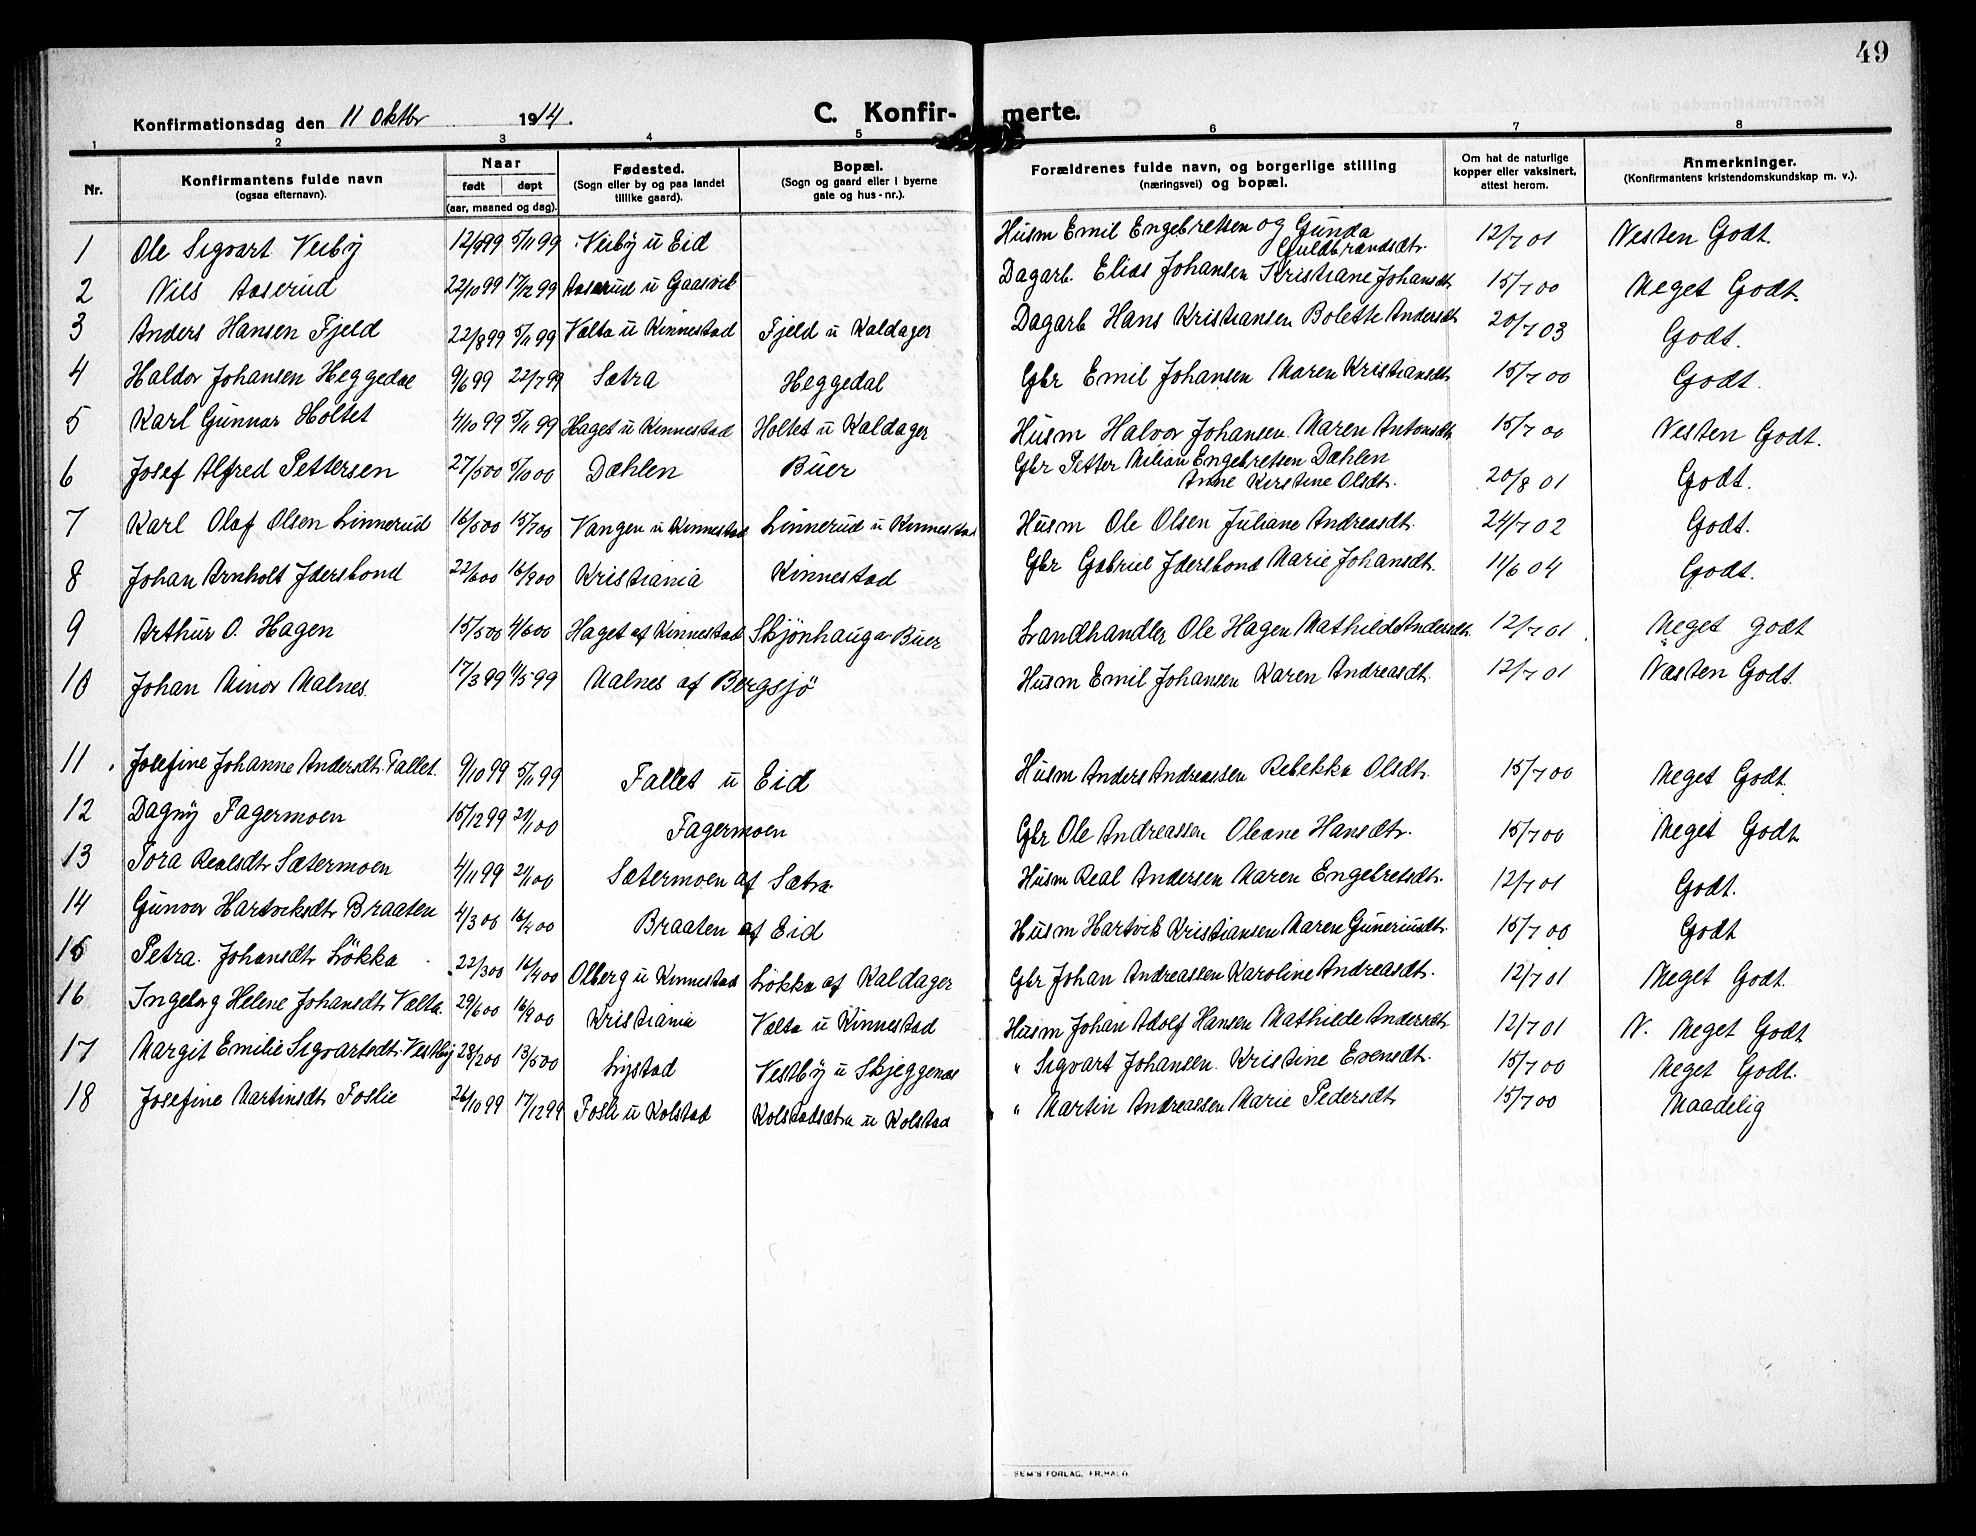 49
Konfirmationsdag den 11 oktbr 1914. C. Konfirmerte.
1 2 3 4 5 6 7 8
Nr. Konfirmantens fulde navn (ogsaa efternavn). Naar født døpt (aar, maaned og dag). Fødested. (Sogn eller by og paa landet tillike gaard). Bopæl. (Sogn og gaard eller i byerne gate og hus-nr.). Forældrenes fulde navn, og borgerlige stilling (næringsvei) og bopæl. Om hat de naturlige kopper eller vaksinert, attest herom. Anmerkninger. (Konfirmantens kristendomskundskap m. v.).
1 Ole Sigvart Veiby 5/11 99 Veiby u Eid Husm Emil Engebretsen og Gunda Guldbrandsdtr. 12/7 01 Nesten Godt.
2 Nils Aaserud 22/10 99 17/12 99 Aaserud u Gaasvik Dagarb. Elias Johansen Kristiane Johansdt 15/7 00 Meget Godt
3 Anders Hansen Fjeld 22/8 99 5/11 99 Vælta u Kinnestad Fjeld u Kaldager Dagarb Hans Kristiansen Bolette Andersdt 20/7 03 Godt.
4 Haldor Johansen Heggedal 9/6 99 22/7 99 Sætra Heggedal Gbr Emil Johansen Maren Kristiansdt 15/7 00 Godt.
5 Karl Gunnar Holtet 4/10 99 5/11 99 Haget u Kinnestad Holtet u Kaldager Husm Halvor Johansen. Maren Antonsdt 15/7 00 Nesten Godt.
6 Josef Alfred Pettersen 27/5 00 5/10 00 Dæhlen Buer Gbr Petter Milian Engebretsen Dæhlen Anne Kirstine Olsdt. 20/8 01 Godt.
7 Karl Olaf Olsen Linnerud 16/5 00 15/7 00 Vangen u Kinnestad Linnerud u Kinnestad Husm Ole Olsen Juliane Andreasdt. 24/7 02 Godt.
8 Johan Arnholt Idersbond 22/6 00 16/9 00 Kristiania Kinnestad Gbr Gabriel Idersbond Marie Johansdt. 11/6 04 Godt.
9 Arthur O. Hagen 15/5 00 4/6 00 Haget af Kinnestad Skjönhaug Buer Landhandler Ole Hagen Mathilde Andersdt. 12/7 01 Meget godt
10 Johan Minor Malnes. 17/3 99 11/5 99 Malnes af Bergsjö Husm Emil Johansen Karen Andreasdt. 12/7 01 Næsten Godt.
11 Josefine Johanne Andersdt. Fallet. 9/10 99 5/11 99 Fallet u Eid Husm Anders Andreassen Rebekka Olsdt. 15/7 00 Meget Godt.
12 Dagny Fagermoen 15/12 99 21/1 00 Fagermoen Gbr Ole Andreassen Oleane Hansdt. 15/7 00 Meget Godt
13 Tora Realsdt Sætermoen 4/11 99 21/1 00 Sætermoen af Sætra. Husm Real Andersen Maren Engebretsdt. 12/7 01 Godt.
14 Gunvor Hartviksdt Braaten 4/3 00 16/4 00 Braaten af Eid Husm Hartvik Kristiansen Maren Guneriusdt. 15/7 00 Godt
15 Petra. Johansdt Lökka 22/3 00 16/4 00 Olberg u Kinnestad Lökka af Kaldager Gbr Johan Andreassen Karoline Andreasdt. 12/7 01 Meget Godt.
16 Ingeborg Helene Johansdt. Vælta. 29/6 00 16/9 00 Kristiania Vælta u Kinnestad Husm Johan Adolf Hansen Mathilde Andersdt 12/7 01 N. Meget Godt
17 Margit Emilie Sigvartsdt. Vestby 28/2 00 13/5 00 Lystad Vestby u Skjeggenæs " Sigvart Johansen. Kristine Evensdt. 15/7 00 Meget Godt.
18 Josefine Martinsdt Foslie 26/10 99 17/12 99 Fosli u Kolstad Kolstadsætra u Kolstad " Martin Andreassen Marie Pedersdt 15/7 00 Maadelig
SEM'S FORLAG, FR.HALD.